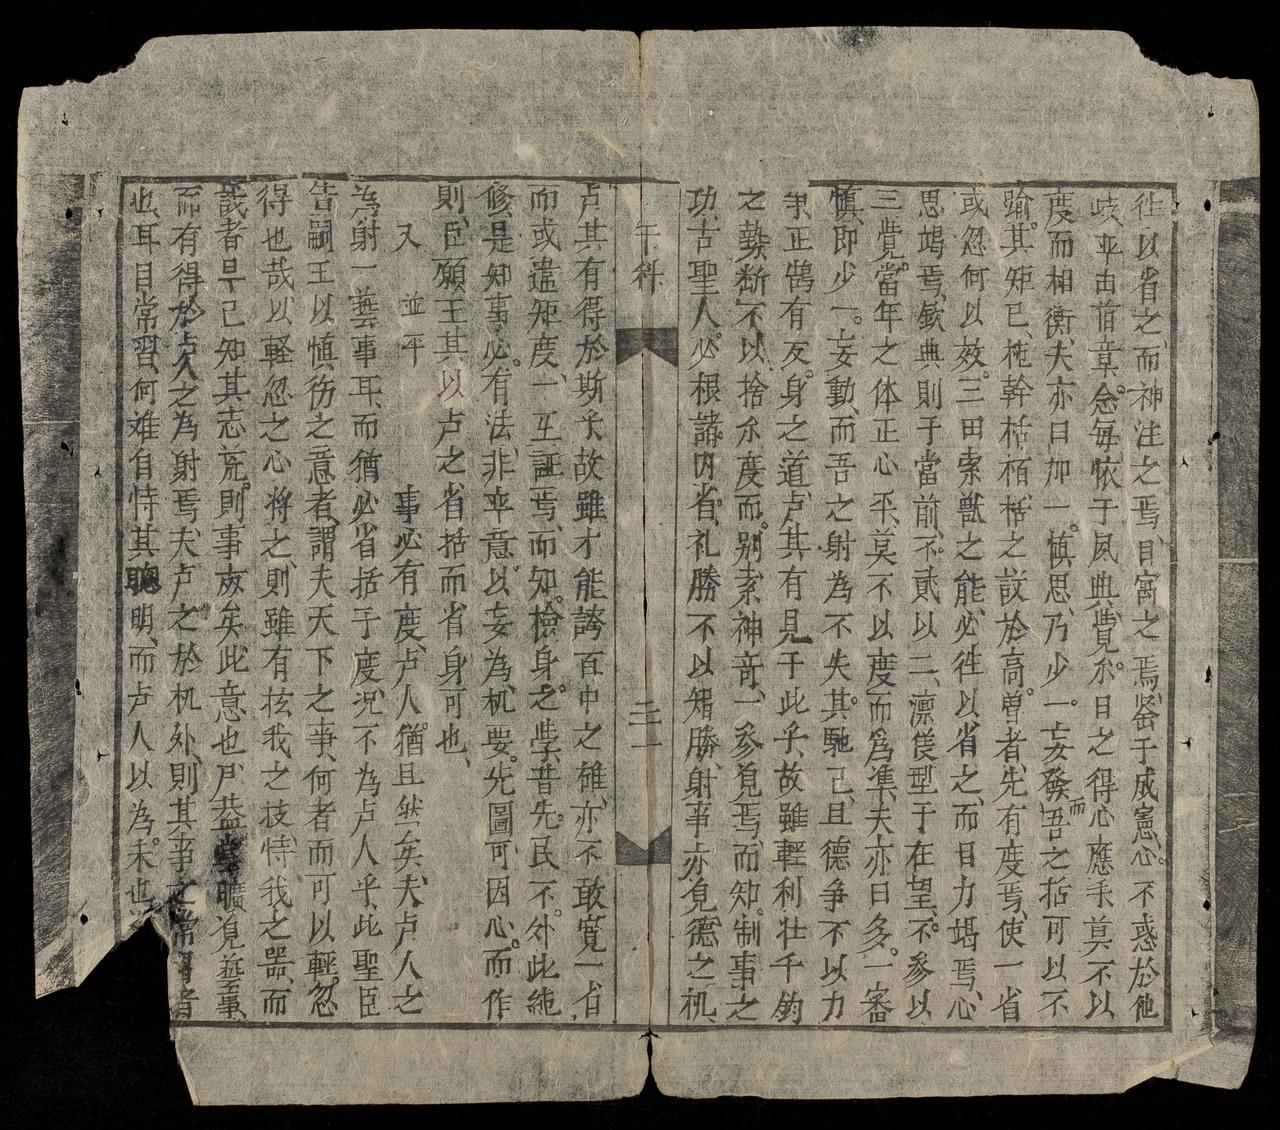 徃以省之、而神注之焉、目寓之焉、䀨于成憲、心。不惑於他
岐、平由前章。念每懷于夙典、覺。尒日之得心應手、莫不以
度而相衡、夫亦曰加一。慎思、乃少一。妄發、而吾之括可以不
踰。其矩已、杝幹栝栢、栝之設於高。曽者、先有度焉、使一省
或忽何以效。三田索獸之能、必徃以省之、而目力竭焉、心
思竭焉、欽典則于當前、不貳以二、凛儀型于在望、不。参以
三、覺。當年之体正心平、莫不以度而爲準、夫亦曰多。一審
慎、即少一。妄動、而吾之射為不失其。馳已、且德爭不以力
爭、正鵠有反。身之道、卢、其有見于此乎、故雖輕利壮千鈞
之勢、断不以捨尒度而。别。素神竒、一参覓焉、而知。制事之
功、古聖人。必根諸内省、礼勝不以智勝、射事亦覓德之机
午科
二一
卢其有得於斯乎故雖才能誇百中之雄、亦不敢寛一省
而或違矩度、一互証焉、而知。檢身之。學、昔先。民不。外此純
修、是知事必。有法、非平意。以。妄為、机要。先圖可因心。而作
則、臣願王其以卢之、省括而省身可也、
又 並平 事必有度、卢人。猶且然矣、夫卢人之
為射一藝事耳、而猶必省括于度、况不為卢人乎、此聖臣
告嗣王以慎伤之意者、謂夫天下之事、何者而可以輕。忽
得也哉以軽忽之心將之、則雖有技我之技、恃我之噐、而
識者早已知其志荒。則、事废矣、此意也、尸益嘗曠覓藝事、
而有得於卢人之為射焉、夫卢之於机外、則其事之常習者
也、耳目常習、何难自恃其聰明、而卢人以為。未也